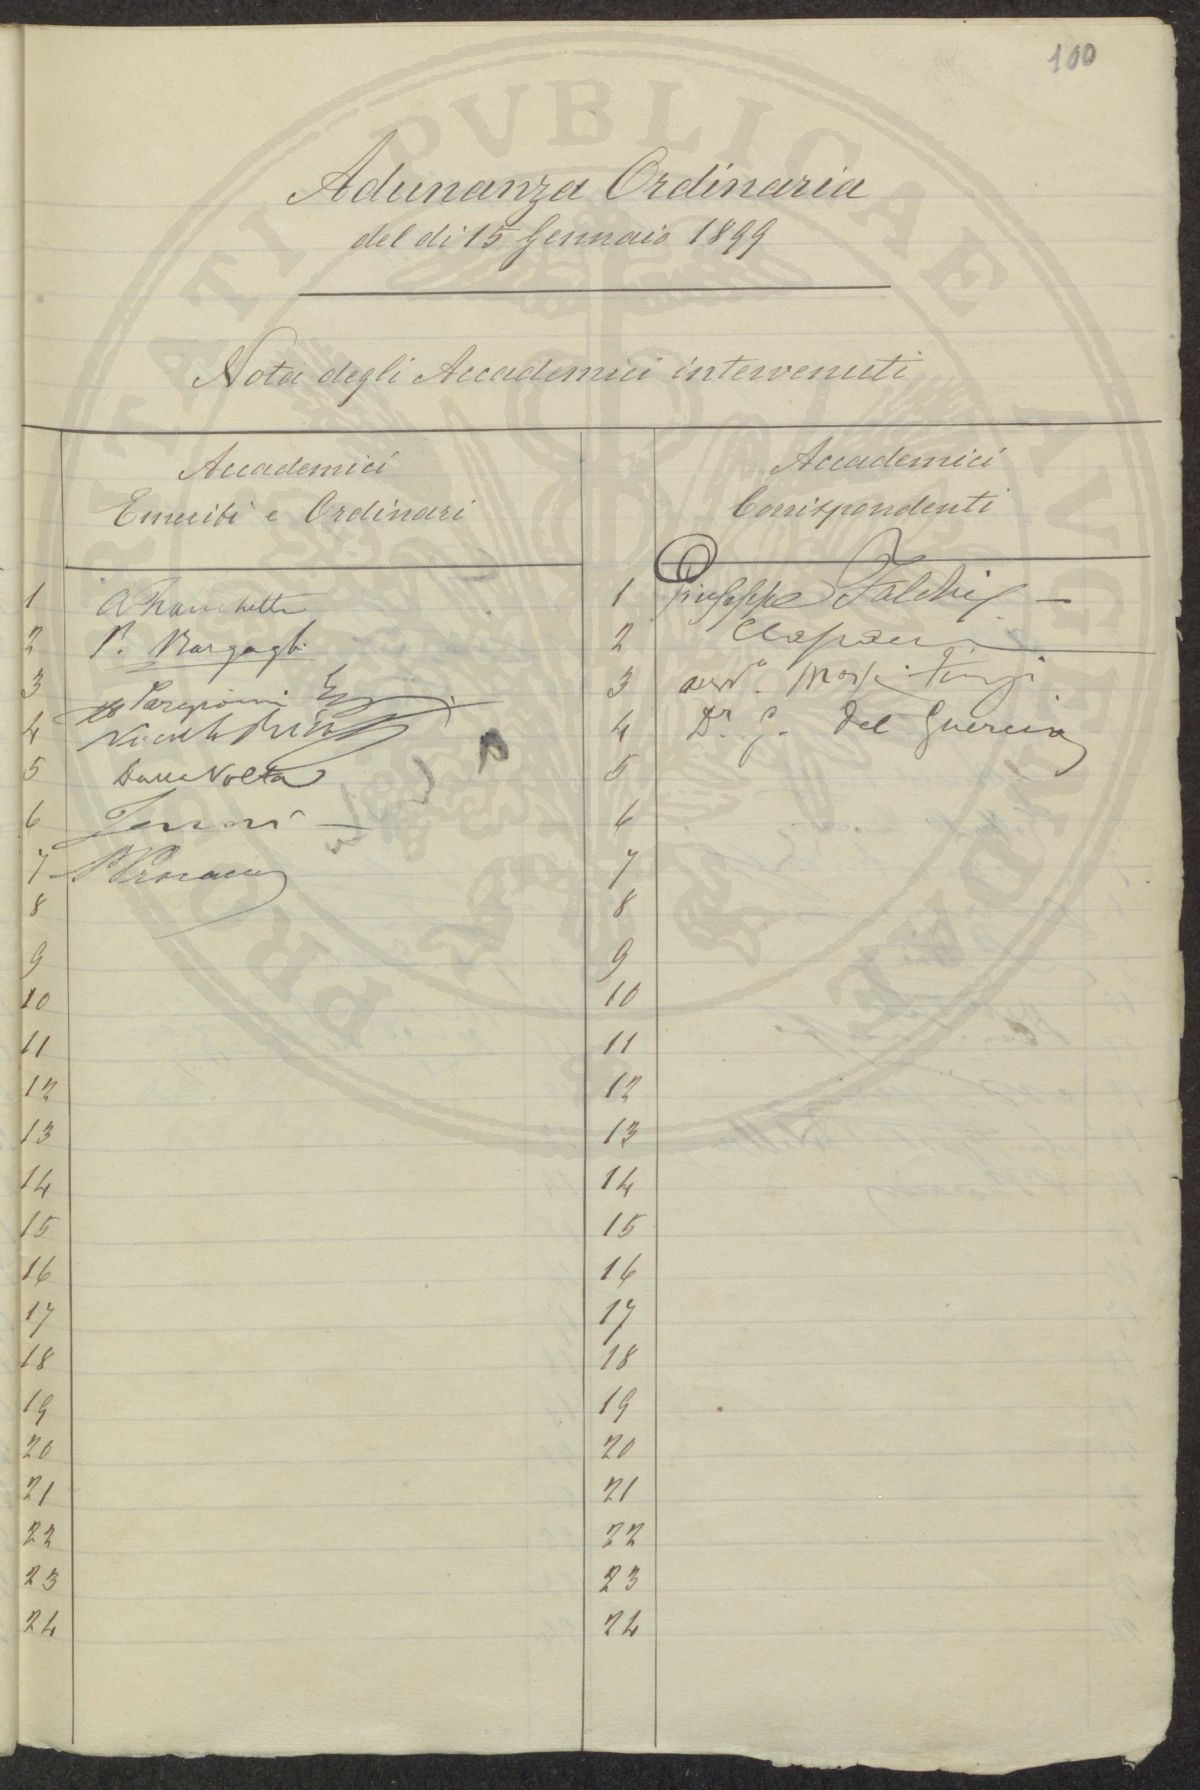 100
Adunanza Ordinaria
del dì 15 Gennaio 1899
Nota degli Accademici intervenuti
Accademici
Emeriti e Ordinari
1
2 P. Bargagli
3 Targioni
4
5 Dalla Volta
6
7
8
9
10
11
12
13
14
15
16
17
18
19
20
21
22
23
24
Accademici
Corrispondenti
1 Giuseppe Falchi
2
3 Avvo.
4 Dr. G. Del Guercio
5
6
7
8
9
10
11
12
13
14
15
16
17
18
19
20
21
22
23
24
PROSPERITATI PVBLICAE AVGENDAE